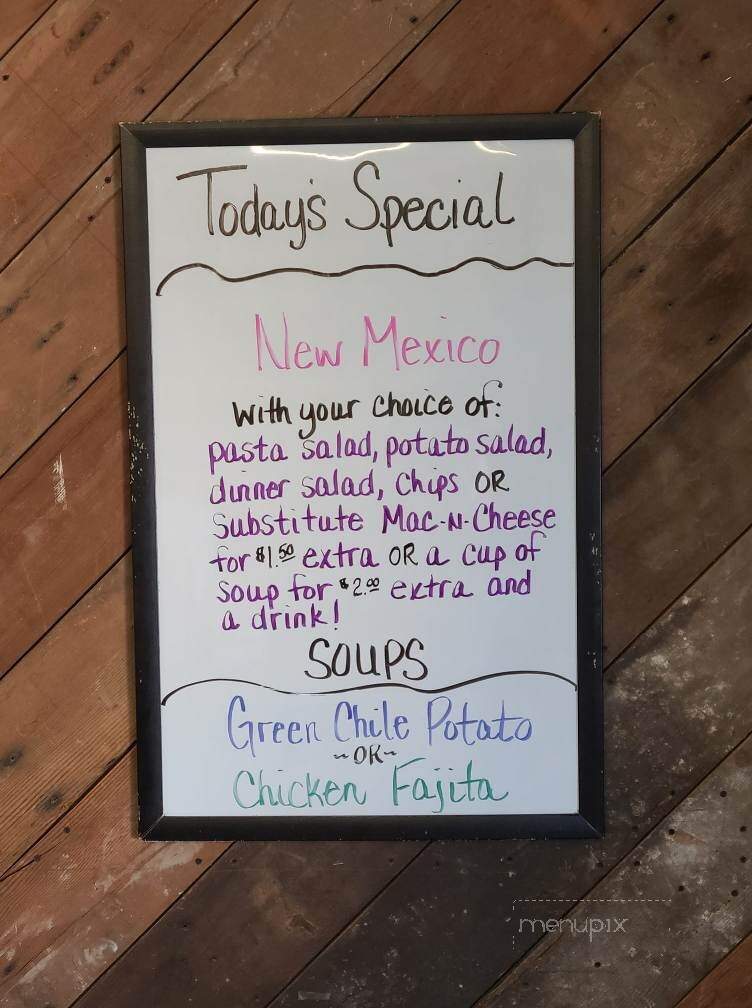 Today's Special
New Mexico
with your choice of:
pasta salad, potato salad,
dinner salad, chips OR
Substitute Mac-N-Cheese
for $1.50 extra OR a cup of
soup for $2.00 extra and
a drink!
SOUPS
Green Chile Potato
~OR~
Chicken Fajita
menupix